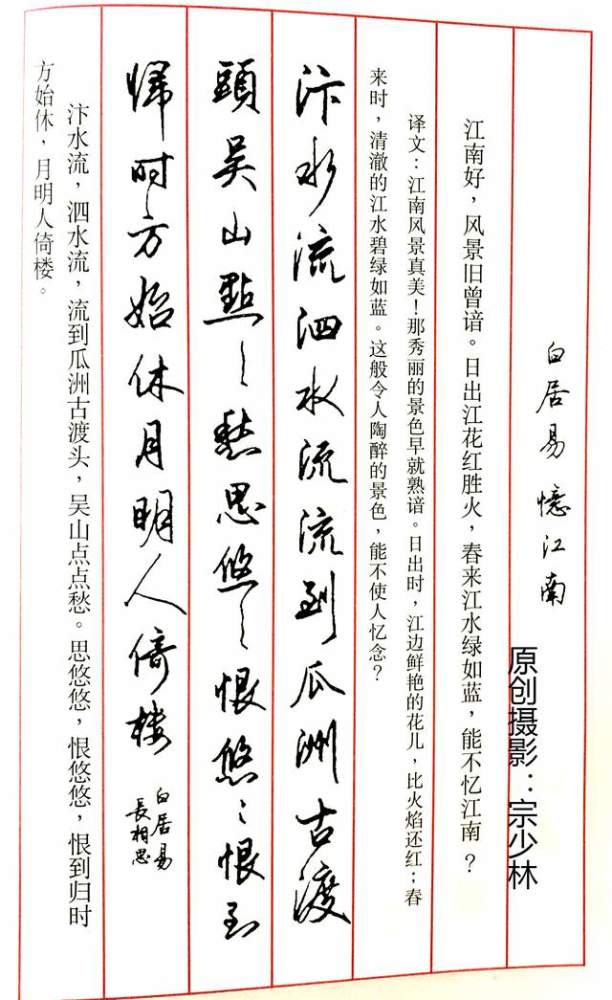 白居易 憶江南
江南好，风景旧曾谙。日出江花红胜火，春来江水绿如蓝，能不忆江南？
译文：江南风景真美！那秀丽的景色早就熟谙。日出时，江边鲜艳的花儿，比火焰还红；春
来时，清澈的江水碧绿如蓝。这般令人陶醉的景色，能不使人忆念？
汴水流泗水流流到瓜洲古渡
頭吴山點〻愁思悠〻恨悠〻恨到
歸时方始休月明人倚楼
白居易
長相思
汴水流，泗水流，流到瓜洲古渡头，吴山点点愁。思悠悠，恨悠悠，恨到归时
方始休，月明人倚楼。
原创摄影：宗少林